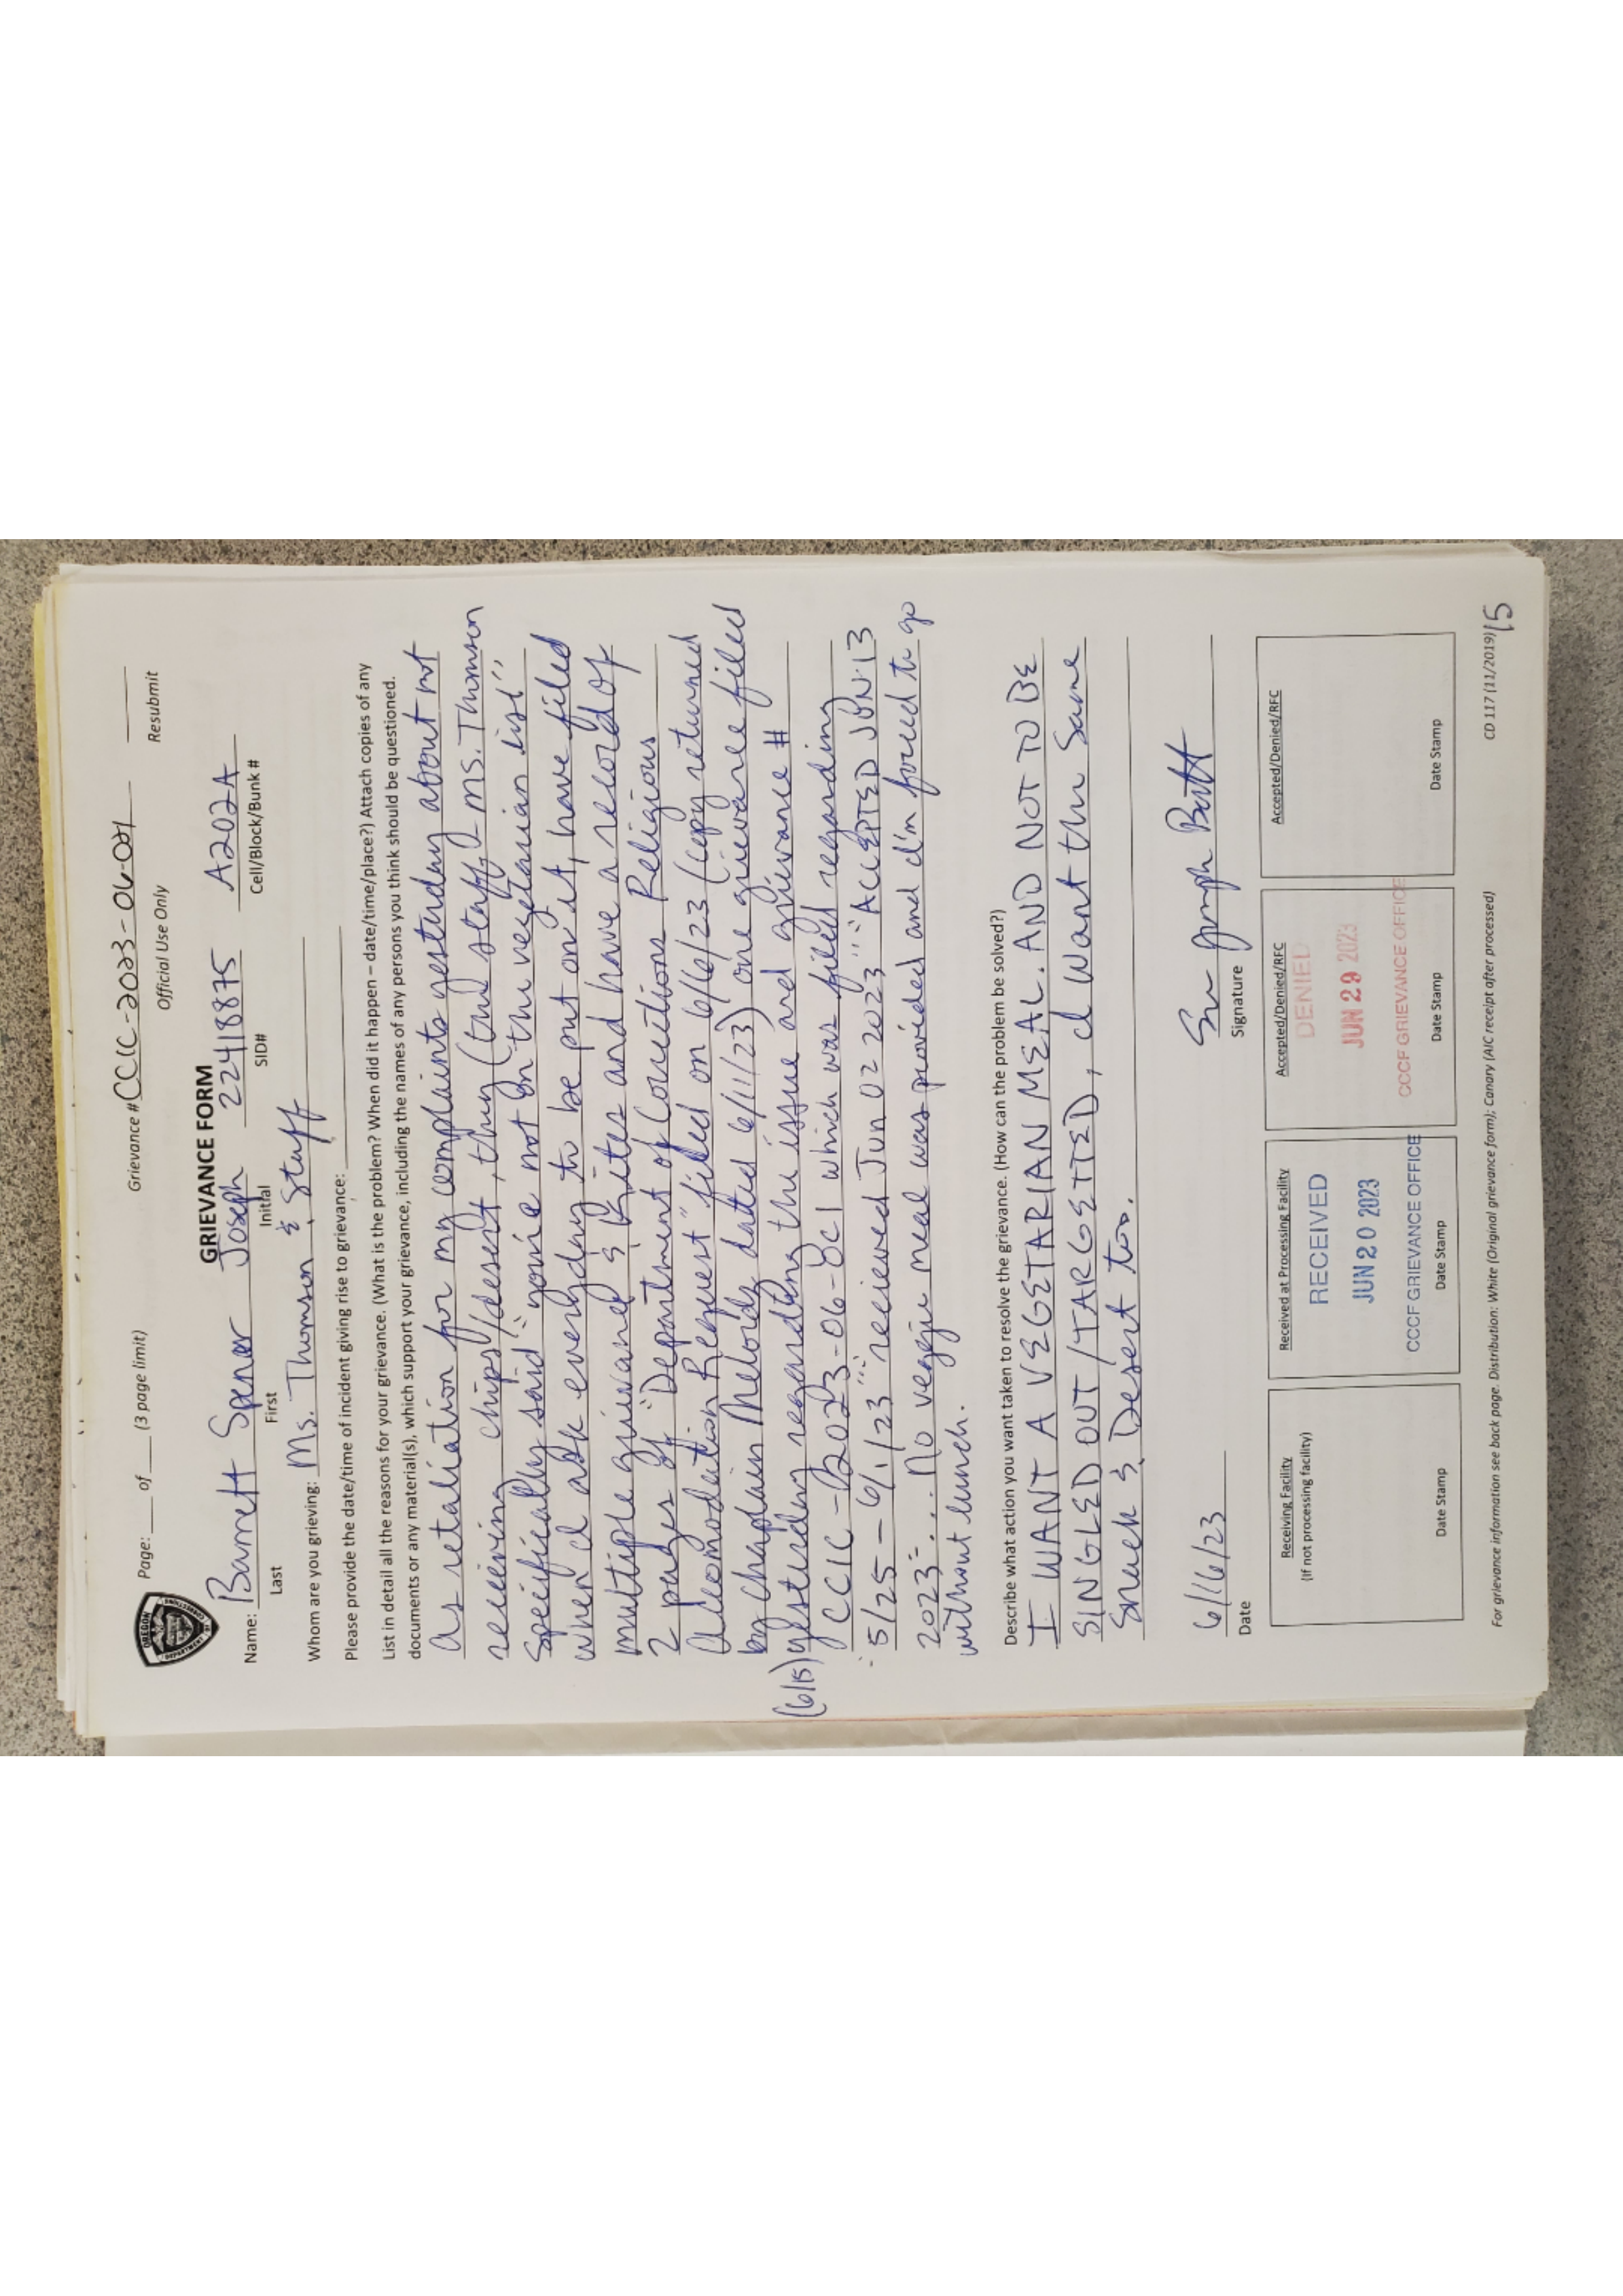 Grievance #CCIC-2023-06-021
Page: ___ of ___ (3 page limit) Official Use Only Resubmit
OREGON
DEPARTMENT OF
CORRECTIONS
GRIEVANCE FORM
Name: Barrett Spencer Joseph 22418875 A202A
Last First Initial SID# Cell/Block/Bunk #
Whom are you grieving: Ms. Thomson & Staff
Please provide the date/time of incident giving rise to grievance:
List in detail all the reasons for your grievance. (What is the problem? When did it happen – date/time/place?) Attach copies of any
documents or any material(s), which support your grievance, including the names of any persons you think should be questioned.
As retaliation for my complaints yesturday about not
recieving chips/desert, they (the staff) Ms. Thomson
Specifically said "you're not on the vegetarian list",
when I ask everyday to be put on it, have filed
multiple grievances & Kites and have a record of
2 pages of "Department of Corrections Religious
Accomodation Request" filed on 6/6/23 (copy returned
by Chaplain Melords dated 6/11/23) one grievance filed
(6/15) yesturday regarding the issue and grievance #
"CCIC-2023-06-8C1 which was filed regarding
5/25 – 6/1/23" "recieved Jun 02 2023" "ACCEPTED JUN 13
2023" ... No veggie meal was provided and I'm forced to go
without lunch.
Describe what action you want taken to resolve the grievance. (How can the problem be solved?)
I WANT A VEGETARIAN MEAL. AND NOT TO BE
SINGLED OUT/TARGETTED, I want the Same
Snack & Desert too.
6/16/23
Date Signature
Receiving Facility
(If not processing facility)
Date Stamp
Received at Processing Facility
RECEIVED
JUN 20 2023
CCCF GRIEVANCE OFFICE
Date Stamp
Accepted/Denied/RFC
DENIED
JUN 29 2023
CCCF GRIEVANCE OFFICE
Date Stamp
Accepted/Denied/RFC
Date Stamp
For grievance information see back page. Distribution: White (Original grievance form); Canary (AIC receipt after processed) CD 117 (11/2019)
15